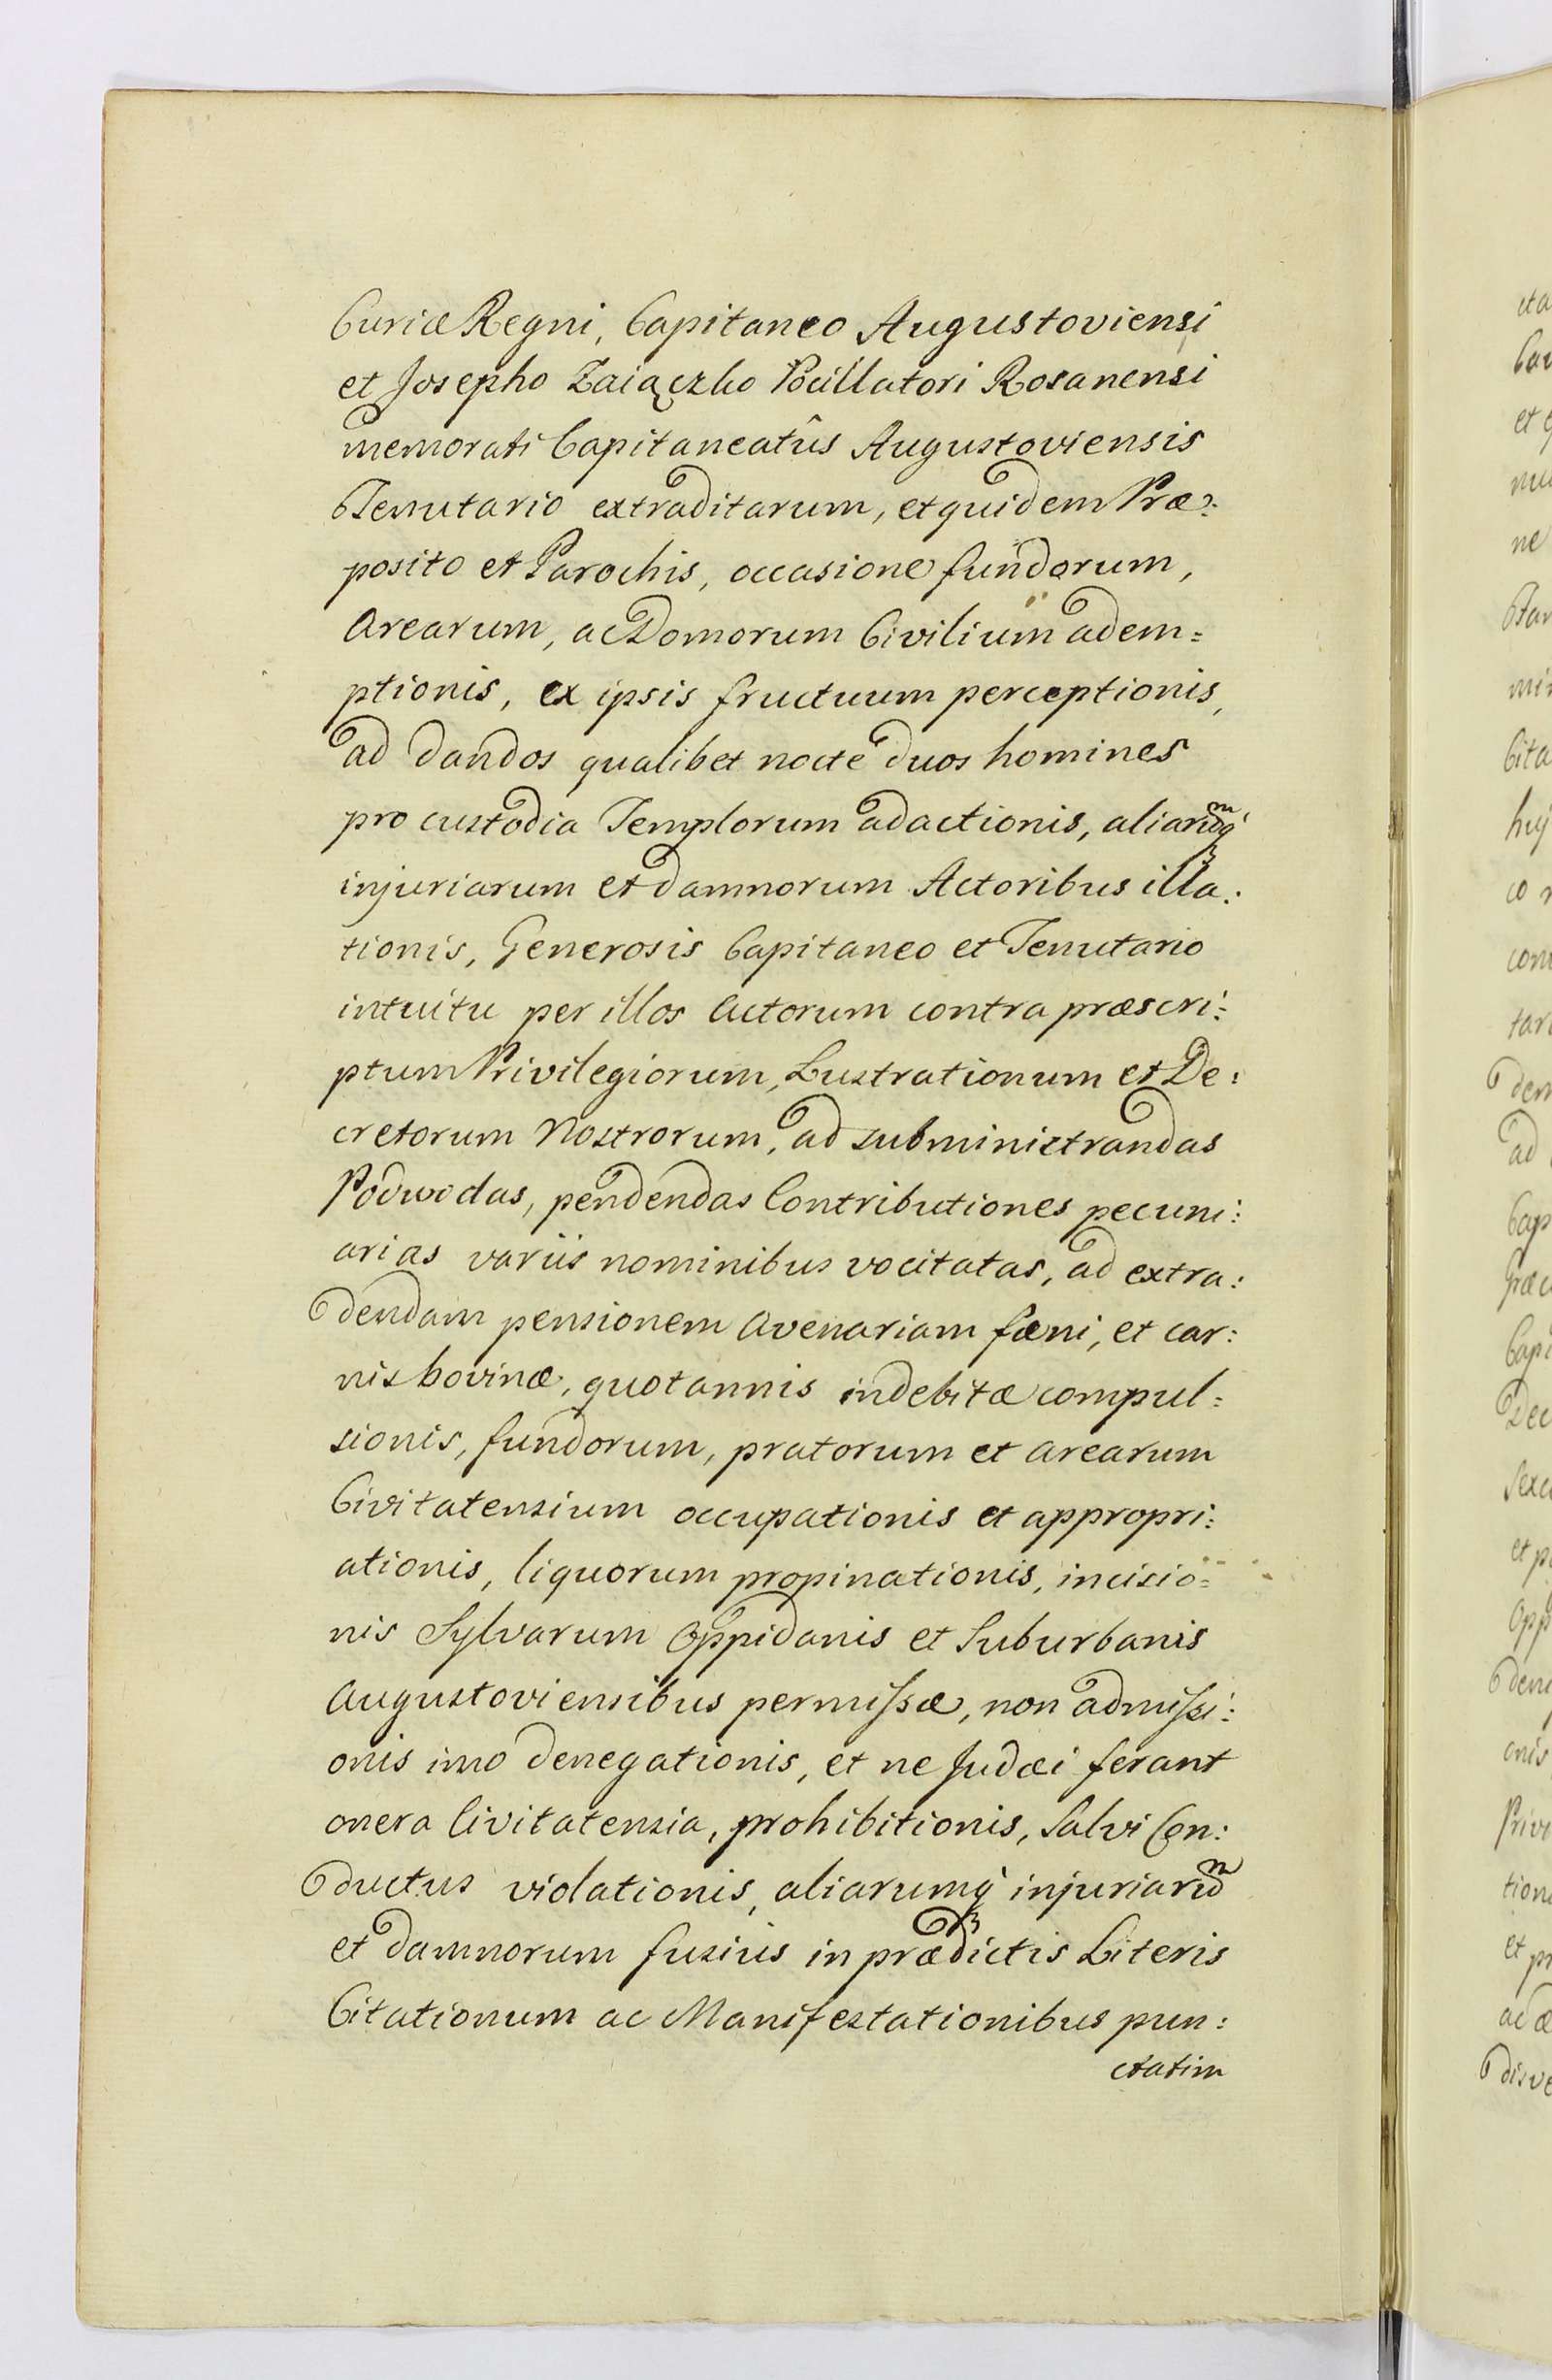 Curiæ Regni, Capitaneo Augustoviensi
et Josepho Zaiączko Pocillatori Rosanensi
memorati Capitaneatûs Augustoviensis
Tenutario extraditarum, et quidem Præ:
posito et Parochis, occasione fundorum,
Arearum, ac Domorum Civilium adem=
ptionis, ex ipsis fructuum perceptionis,
ad dandos qualibet nocte duos homines
pro custodia Templorum adactionis, aliarumq́
injuriarum et damnorum Actoribus illa:
tionis, Generosis Capitaneo et Tenutario
intuitu per illos Actorum contra præscri:
ptum Privilegiorum, Lustrationum et De:
cretorum Nostrorum, ad subministrandas
Podwodas, pendendas Contributiones pecuni:
arias variis nominibus vocitatas, ad extra:
dendam pensionem Avenariam fæni, et car:
nis bovinæ, quotannis indebitæ compul=
sionis, fundorum, pratorum et arearum
Civitatensium occupationis et appropri:
ationis, liquorum propinationis, incisio=
nis Sylvarum Oppidanis et Suburbanis
Augustoviensibus permissæ, non admissi:
onis imo denegationis, et ne Judæi ferant
onera Civitatensia, prohibitionis, Salvi Con:
ductus violationis, aliarumq́ injuriarum
et damnorum fusius in prædictis Literis
Citationum ac Manifestationibus pun:
ctatim